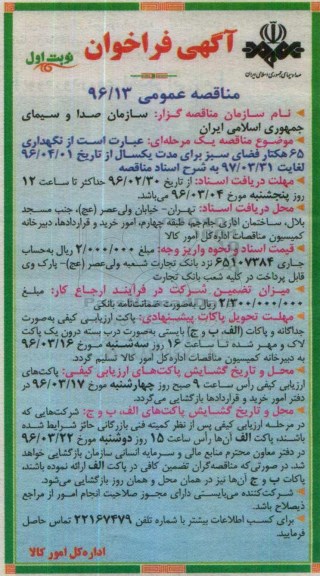 آگهی فراخوان
نوبت اول
صدا و سیمای جمهوری اسلامی ایران
مناقصه عمومی ۹۶/۱۳
نام سازمان مناقصه گزار: سازمان صدا و سیمای
جمهوری اسلامی ایران
موضوع مناقصه یک مرحله‌ای: عبارت است از نگهداری
۶۵ هکتار فضای سبز برای مدت یکسال از تاریخ ۹۶/۰۴/۰۱
لغایت ۹۷/۰۳/۳۱ به شرح اسناد مناقصه
مهلت دریافت اسناد: از تاریخ ۹۶/۰۲/۳۰ حداکثر تا ساعت ۱۲
روز پنجشنبه مورخ ۹۶/۰۳/۰۴ می‌باشد.
محل دریافت اسناد: تهران - خیابان ولی‌عصر (عج)، جنب مسجد
بلال، ساختمان اداری جام‌جم، طبقه چهارم، امور خرید و قراردادها، دبیرخانه
کمیسیون مناقصات اداره‌کل امور کالا
قیمت اسناد و نحوه واریز وجه: مبلغ ۲/۰۰۰/۰۰۰ ریال به‌حساب
جاری ۶۵۱۰۷۳۸۴ نزد بانک تجارت شعبه ولی‌عصر (عج)- پارک وی
قابل پرداخت در کلیه شعب بانک تجارت
میزان تضمین شرکت در فرآیند ارجاع کار: مبلغ
۲/۳۰۰/۰۰۰/۰۰۰ ریال به‌صورت ضمانت‌نامه بانکی
مهلت تحویل پاکات پیشنهادی: پاکت ارزیابی کیفی به‌صورت
جداگانه و پاکات (الف، ب و ج) بایستی به‌صورت درب بسته درون یک پاکت
لاک و مهر شده تا ساعت ۱۶ روز سه‌شنبه مورخ ۹۶/۰۳/۱۶
به دبیرخانه کمیسیون مناقصات اداره‌کل امور کالا تسلیم گردد.
محل و تاریخ گشایش پاکت‌های ارزیابی کیفی: پاکت‌های
ارزیابی کیفی رأس ساعت ۹ صبح روز چهارشنبه مورخ ۹۶/۰۳/۱۷ در
دفتر امور خرید و قراردادها بازگشایی می‌گردد.
محل و تاریخ گشایش پاکت‌های الف، ب و ج: شرکت‌هایی که
در مرحله ارزیابی کیفی پس از نظر کمیته فنی بازرگانی حائز شرایط شده
باشند، پاکت الف آن‌ها رأس ساعت ۱۵ روز دوشنبه مورخ ۹۶/۰۳/۲۲
در دفتر معاون محترم منابع مالی و سرمایه انسانی سازمان بازگشایی خواهد
شد. در صورتی‌که مناقصه‌گران تضمین کافی در پاکت الف ارائه نموده باشند،
پاکات ب و ج آن‌ها نیز در همان محل و همان روز بازگشایی می‌شود.
شرکت‌کننده می‌بایستی دارای مجوز صلاحیت انجام امور از مراجع
ذیصلاح باشد.
برای کسب اطلاعات بیشتر با شماره تلفن ۲۲۱۶۷۴۷۹ تماس حاصل
فرمایید.
اداره‌کل امور کالا